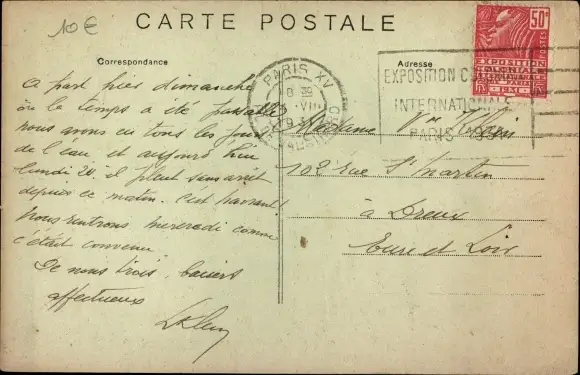 10€
CARTE POSTALE
Correspondance
Adresse
A part hier dimanche
où le temps a été passable
nous avons eu tous les jours
de l'eau, et aujourd'hui
lundi 20, il pleut sans arrêt
depuis ce matin. C'est navrant
Nous rentrons mercredi comme
c'était convenu
De nous trois, baisers
affectueux
PARIS XV
EXPOSITION
INTERNATIONALE
PARIS
50c
POSTES
EXPOSITION
COLONIALE
INTERNATIONALE
DE PARIS
Madame Vve
102 rue St Martin
à Dreux
Eure et Loir